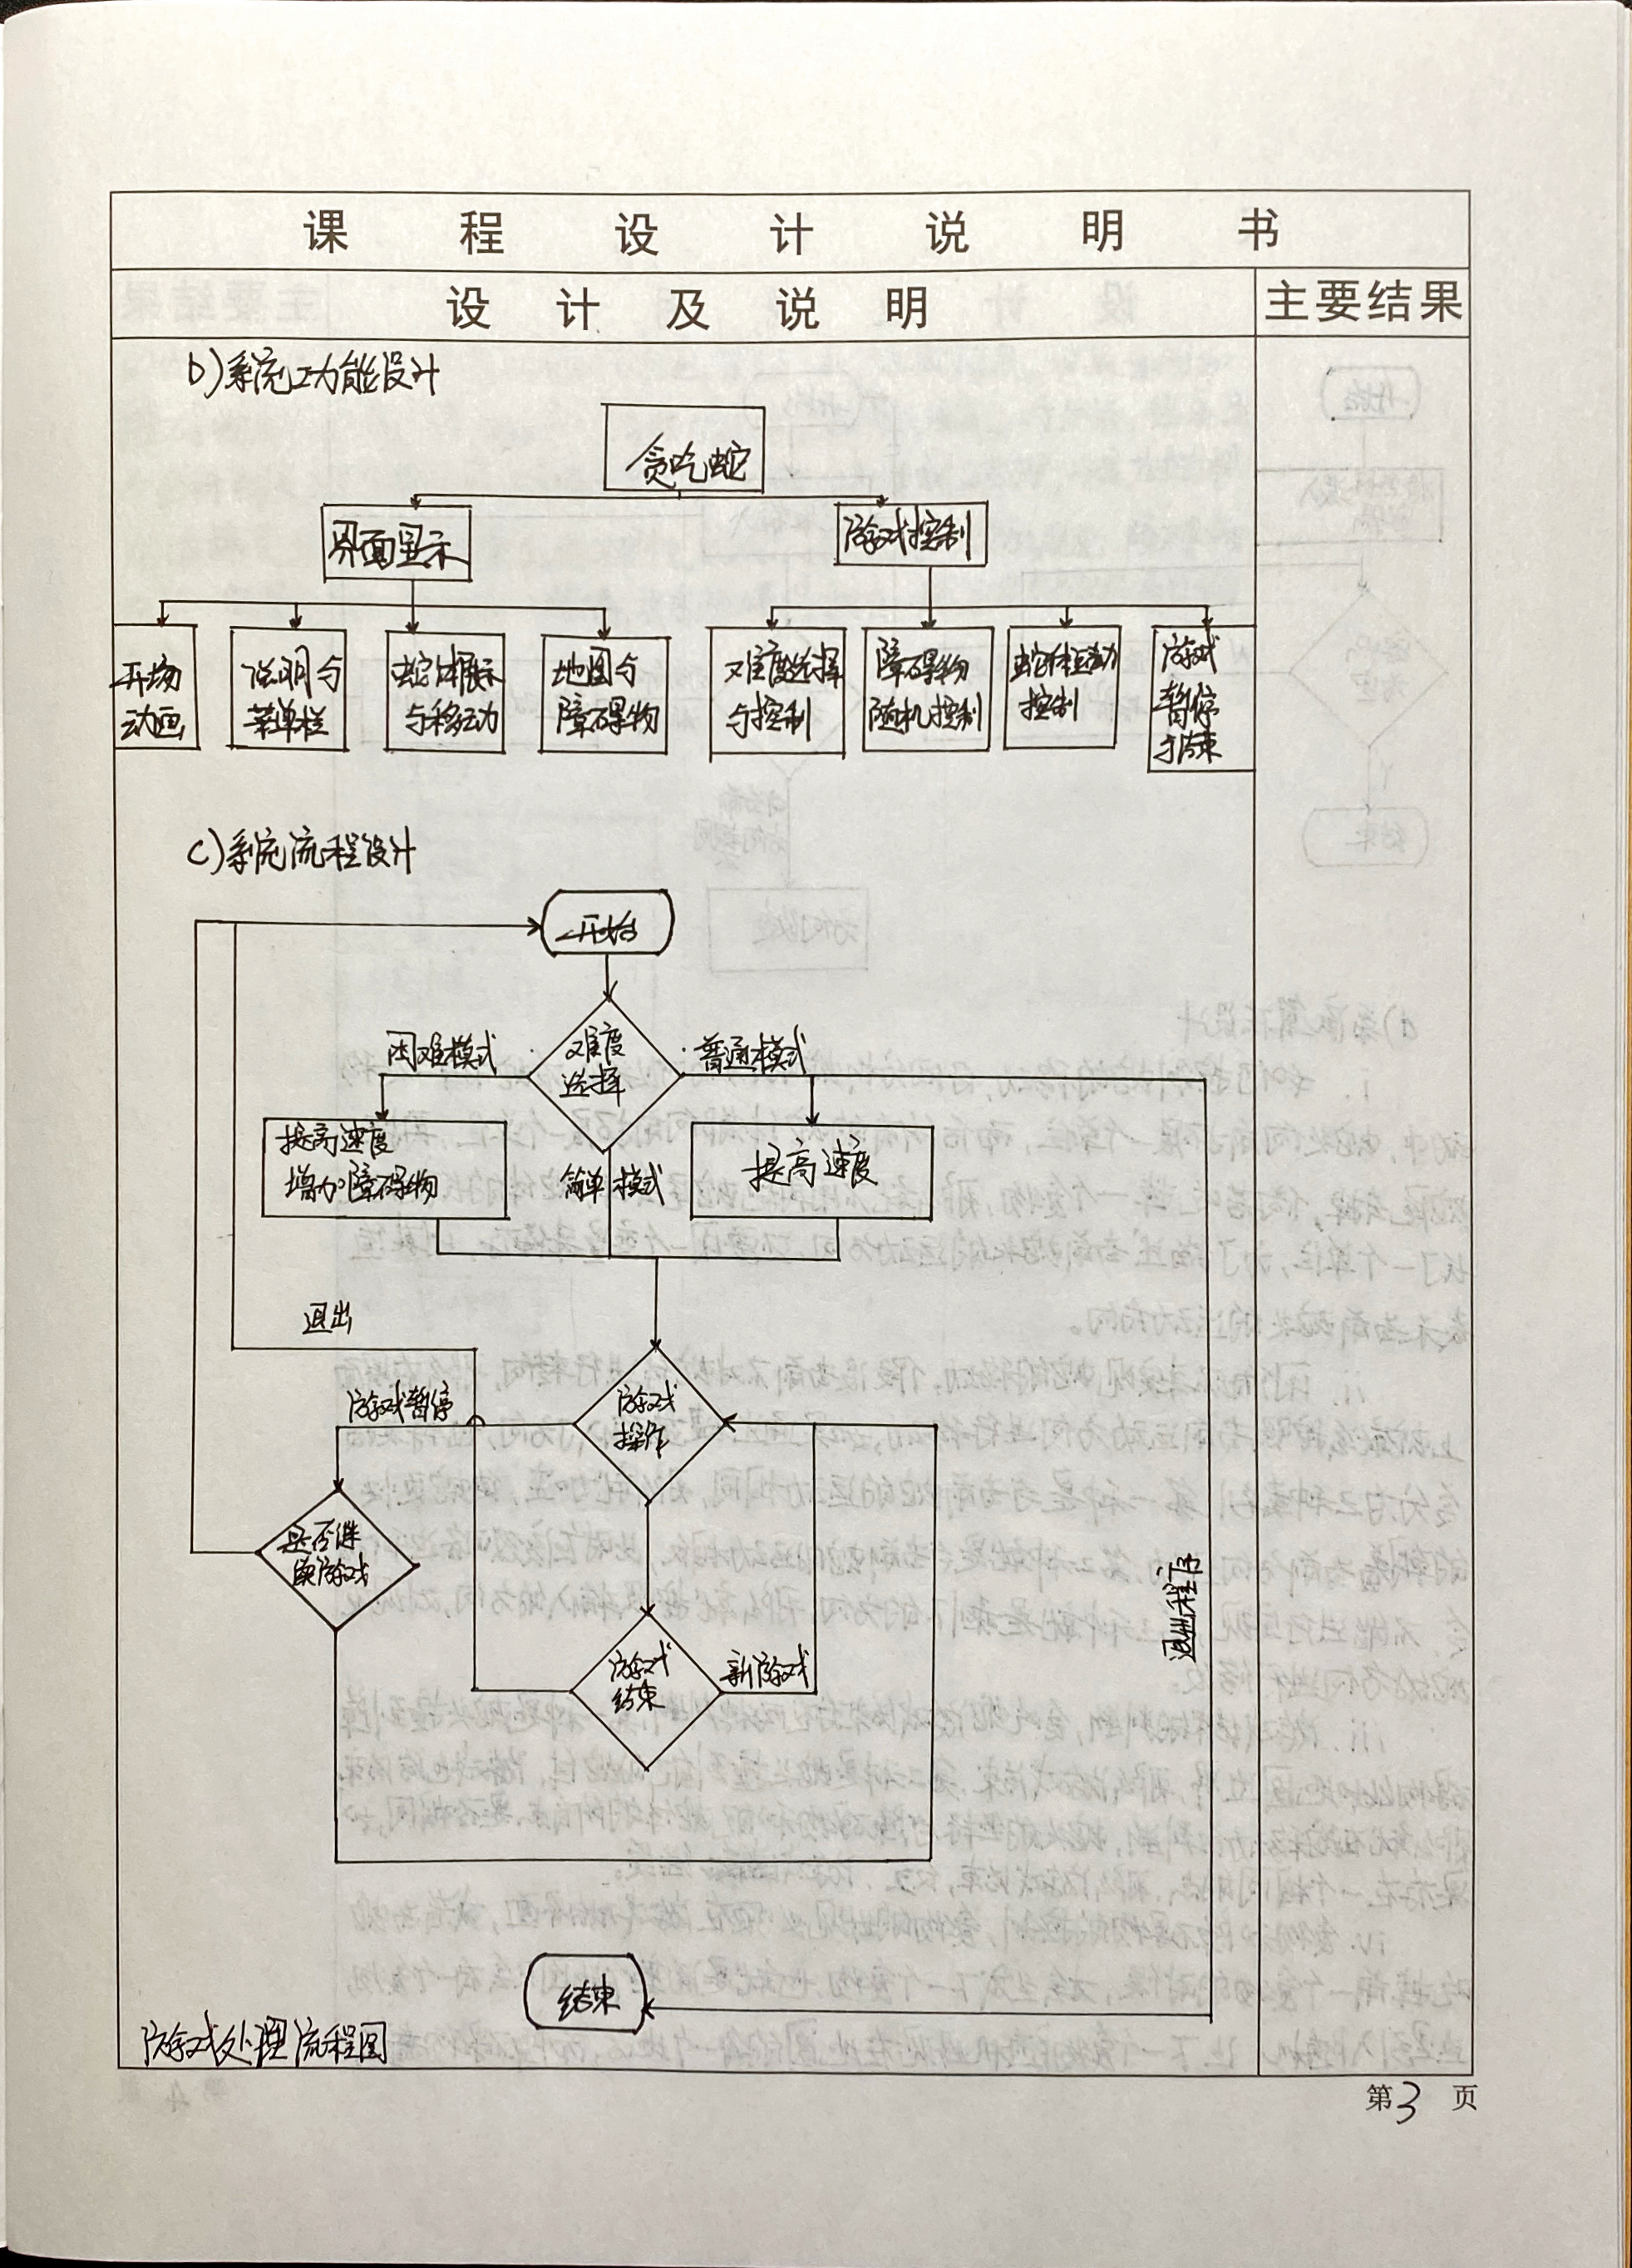 课程设计说明书
设计及说明
主要结果
b)系统功能设计
贪吃蛇
界面显示
游戏控制
开场
动画
说明与
菜单栏
蛇体展示
与移动
地图与
障碍物
难度选择
与控制
障碍物
随机控制
蛇体运动
控制
游戏
暂停
与结束
c)系统流程设计
开始
难度
选择
困难模式
普通模式
提高速度
增加障碍物
简单模式
提高速度
退出
游戏暂停
游戏
操作
是否继
续游戏
游戏
结束
新游戏
退出程序
结束
游戏处理流程图
第3页